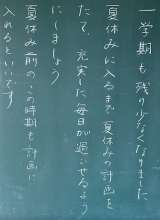 一学期も残り少なくなりました
夏休みに入るまで夏休みの計画を
たて、充実した毎日が過ごせるよう
にしましょう
夏休み前のこの時期も計画に
入れるといいです